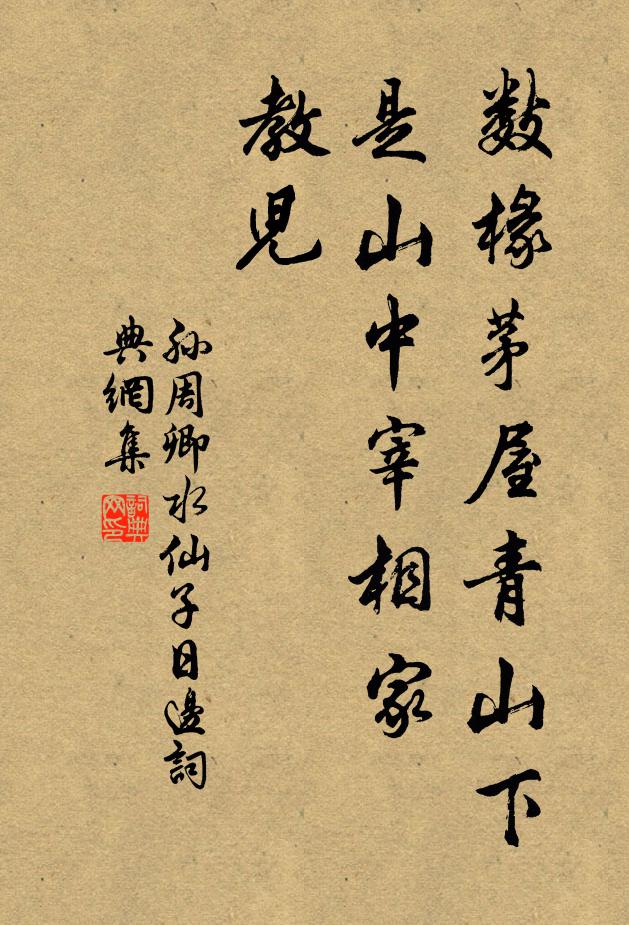 数椽茅屋青山下
是山中宰相家
教児
孙周卿水仙子日邊詞
典網集
詞典
网印